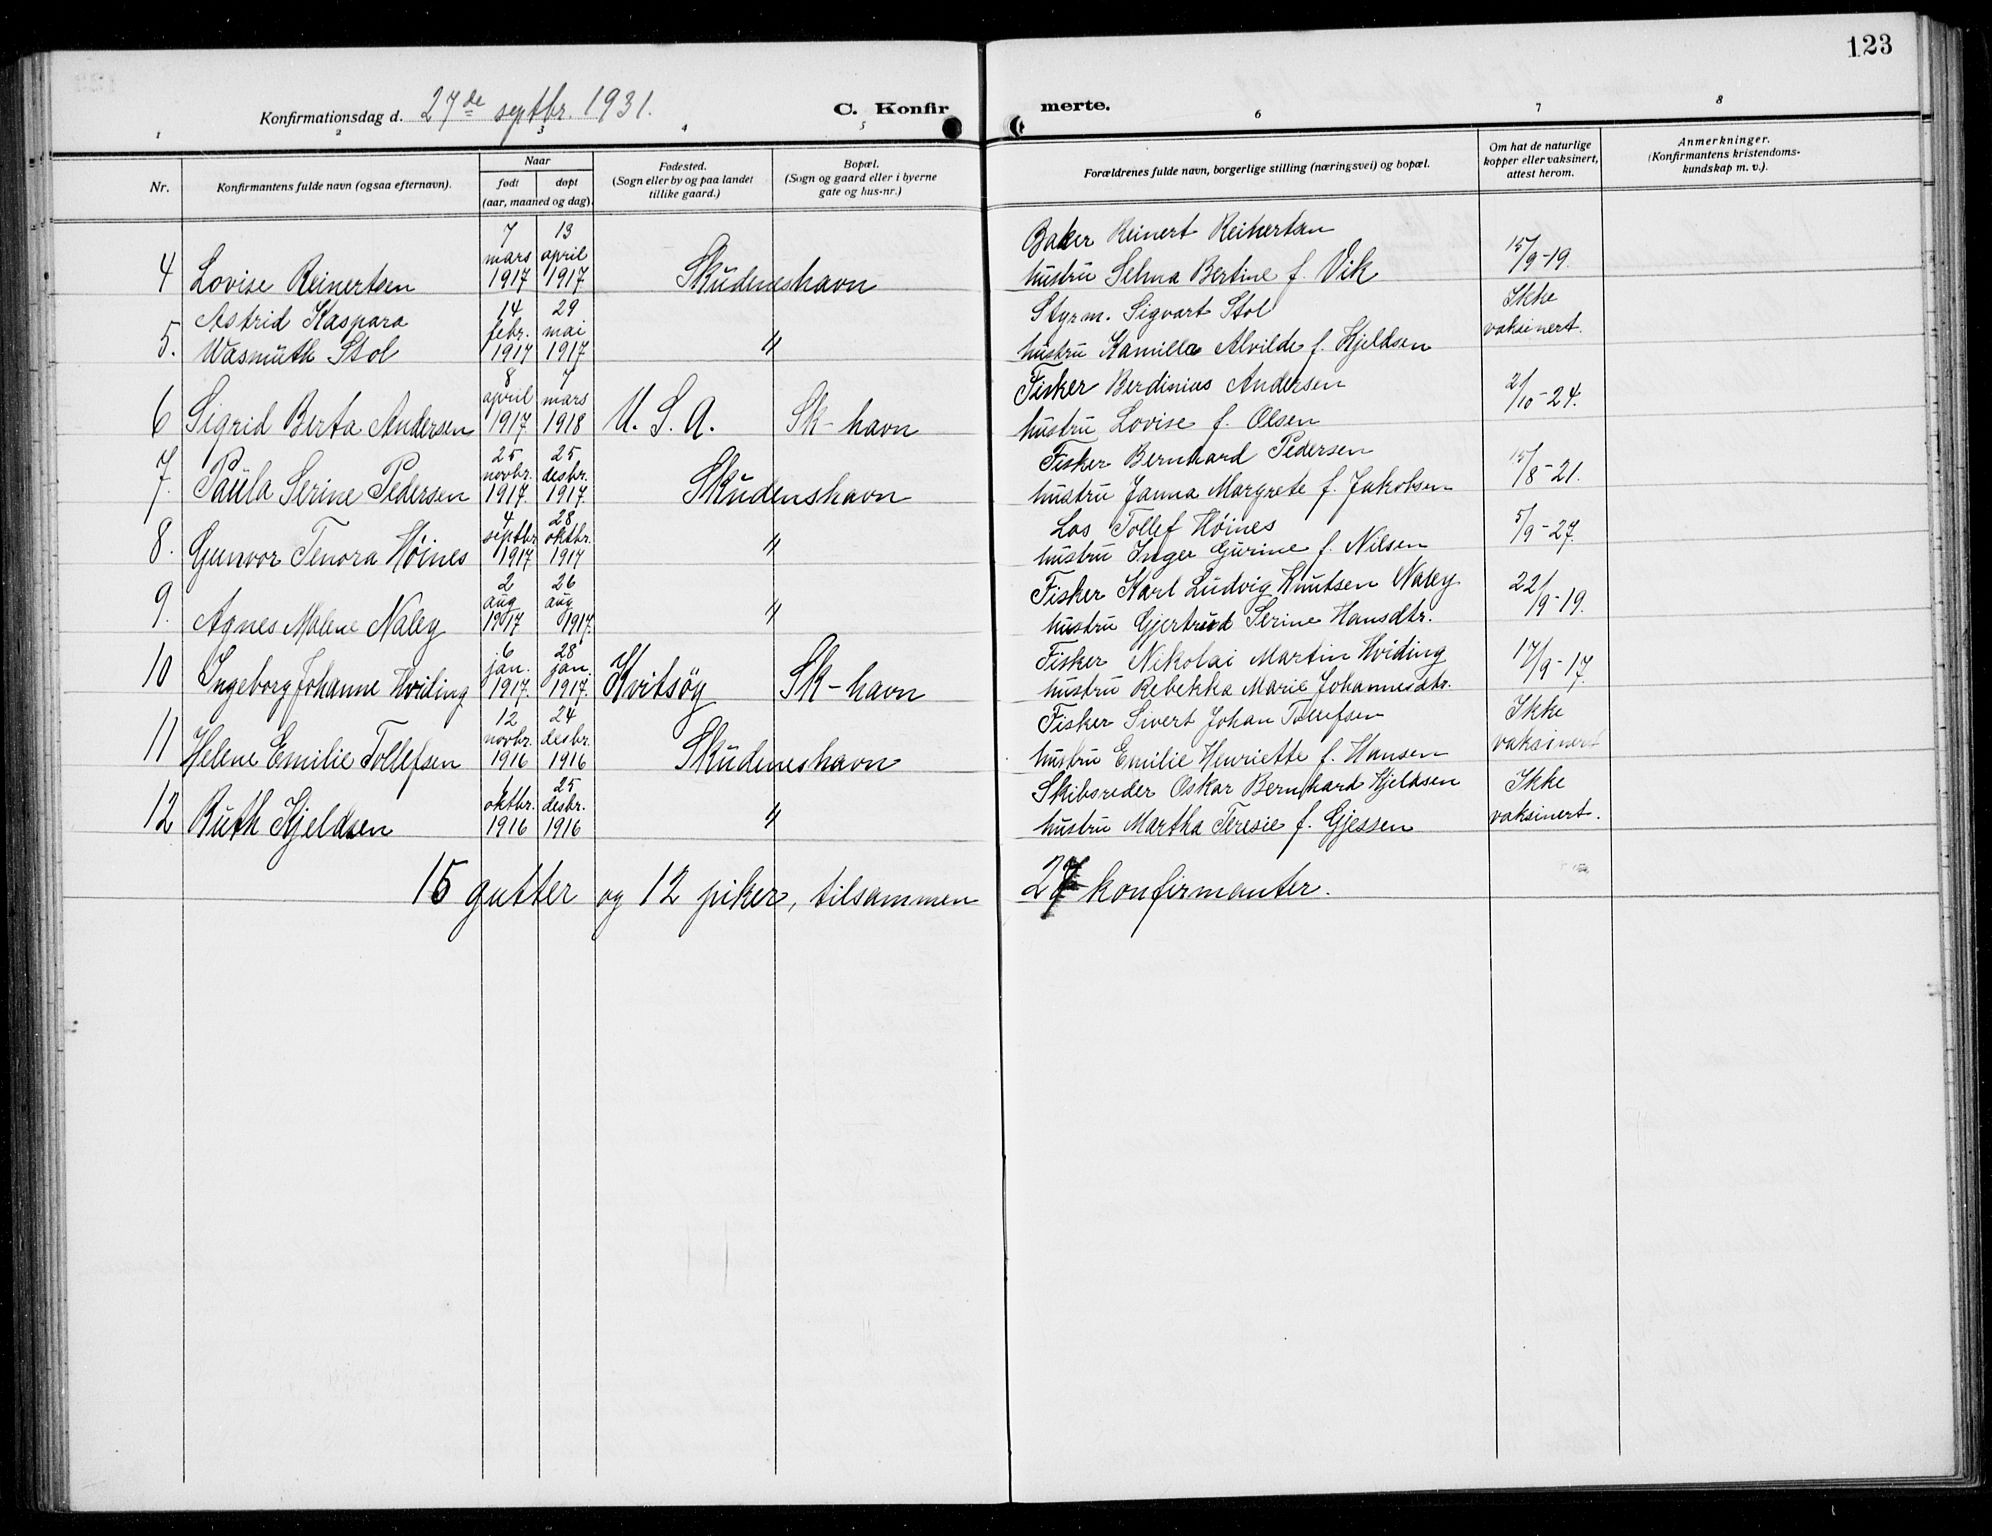 123
Konfirmationsdag d. 27de septbr. 1931.
C. Konfirmerte.
1 2 3 4 5 6 7 8
Nr.
Konfirmantens fulde navn (ogsaa efternavn).
Naar
født
døpt
(aar, maaned og dag).
Fødested.
(Sogn eller by og paa landet
tillike gaard.)
Bopæl.
(Sogn og gaard eller i byerne
gate og hus-nr.)
Forældrenes fulde navn, borgerlige stilling (næringsvei) og bopæl.
Om hat de naturlige
kopper eller vaksinert,
attest herom.
Anmerkninger.
(Konfirmantens kristendoms-
kundskap m. v.).
4 Lovise Reinertsen 7 mars 1917 13 april 1917 Skudeneshavn
Baker Reinert Reinertsen
hustru Selma Bertine f. Vik 15/9-19
5. Astrid Kaspara
Wasmuth Stol 14 febr. 1917 29 mai 1917 "
Styrm. Sigvart Stol
hustru Kamilla Alvilde f. Kjeldsen
Ikke
vaksinert.
6 Sigrid Berta Andersen 8 april 1917 7 mars 1918 U. S. A. Sk-havn
Fisker Berdinius Andersen
hustru Lovise f. Olsen 2/10-24.
7. Paula Serine Pedersen 25 novbr. 1917. 25 desbr. 1917. Skudenshavn
Fisker Bernhard Pedersen
hustru Janna Margrete f. Jakobsen 15/8-21.
8. Gunvor Tenora Høines 4 septbr 1917 28 oktbr. 1917 "
Los Tollef Høines
hustru Inger Gurine f. Nilsen 5/9-27.
9. Agnes Malene Naley 2 aug 1917 26 aug 1917. "
Fisker Karl Ludvig Knutsen Naley
hustru Gjertrud Serine Hansdtr. 22/9-19.
10 Ingeborg Johanne Hviding 6 jan. 1917. 28 jan 1917. Kvitsöy Sk-havn
Fisker Nikolai Martin Hviding
hustru Rebekka Marie Johannesdtr. 17/9-17.
11 Helene Emilie Tollefsen 12 novbr. 1916 24 desbr. 1916 Skudeneshavn
Fisker Sivert Johan Tollefsen
hustru Emilie Henriette f. Hansen
Ikke
vaksinert
12 Ruth Kjeldsen 1 oktbr. 1916 25 desbr. 1916 "
Skibsreder Oskar Bernhard Kjeldsen
hustru Martha Teresie f. Gjessen
Ikke
vaksinert.
15 gutter og 12 piker, tilsammen 27 konfirmanter.